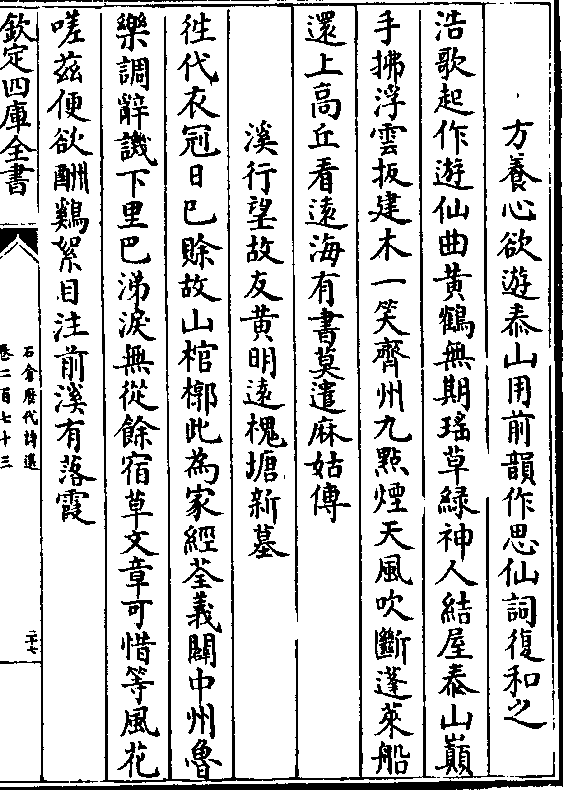 方養心欲遊泰山用前韻作思仙詞復和之
浩歌起作遊仙曲黃鶴無期瑤草綠神人結屋泰山巔
手拂浮雲扳建木一笑齊州九點煙天風吹斷蓬萊船
還上高丘看遠海有書莫遣麻姑傳
溪行望故友黃明遠槐塘新墓
徃代衣冠日已賖故山棺槨此為家經荃義闢中州魯
樂調辭譏下里巴涕淚無從餘宿草文章可惜等風花
嗟茲便欲酬鷄絮目注前溪有落霞
欽定四庫全書
石倉歷代詩選
卷二百七十三
二十七